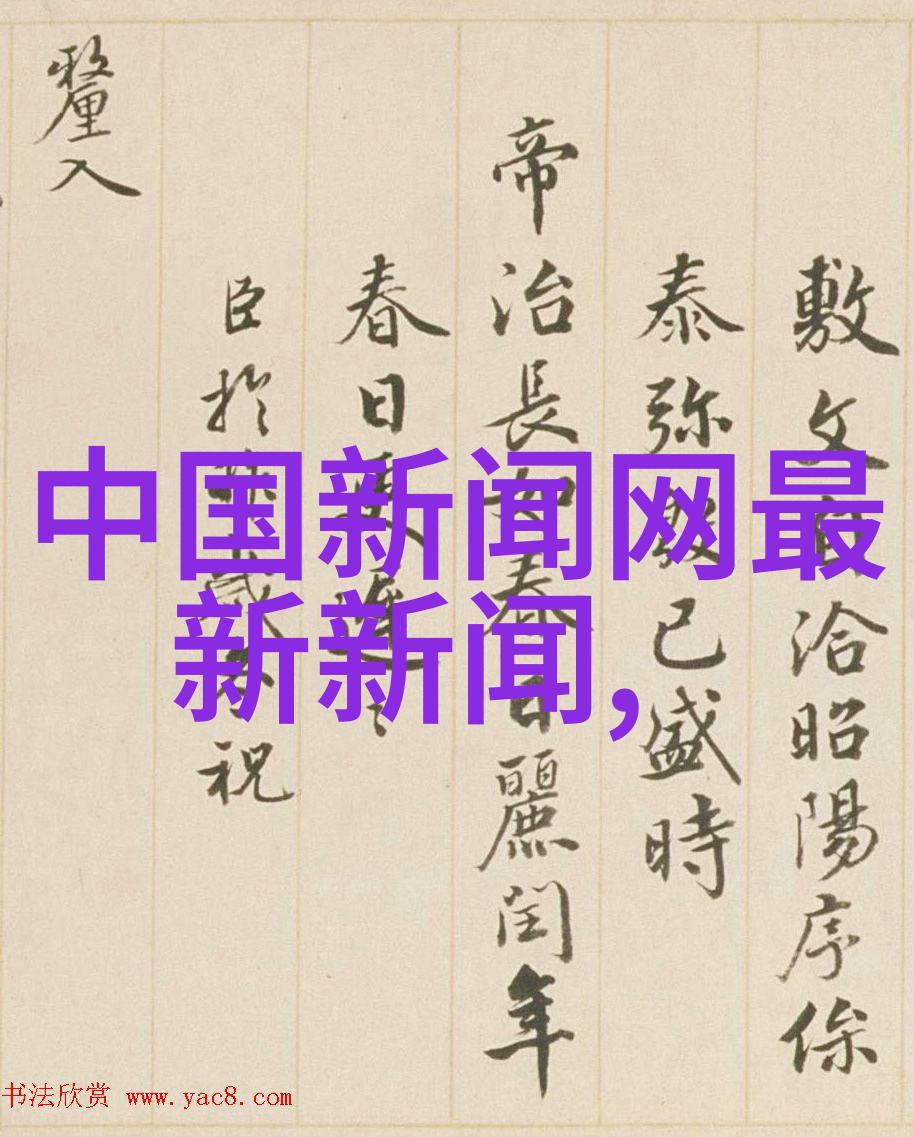 敷文洽昭陽序
泰弥已盛時
帝治長春日麗閏年
春日遲
臣於祝
釐入
中国新闻网最
新新闻,
书法欣赏 www.yac8.com